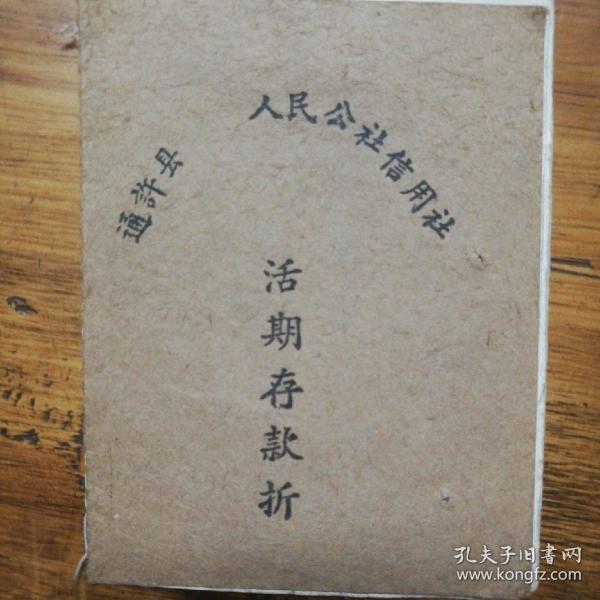 通許县 人民公社信用社
活期存款折
孔夫子旧書网
www.kongfz.com